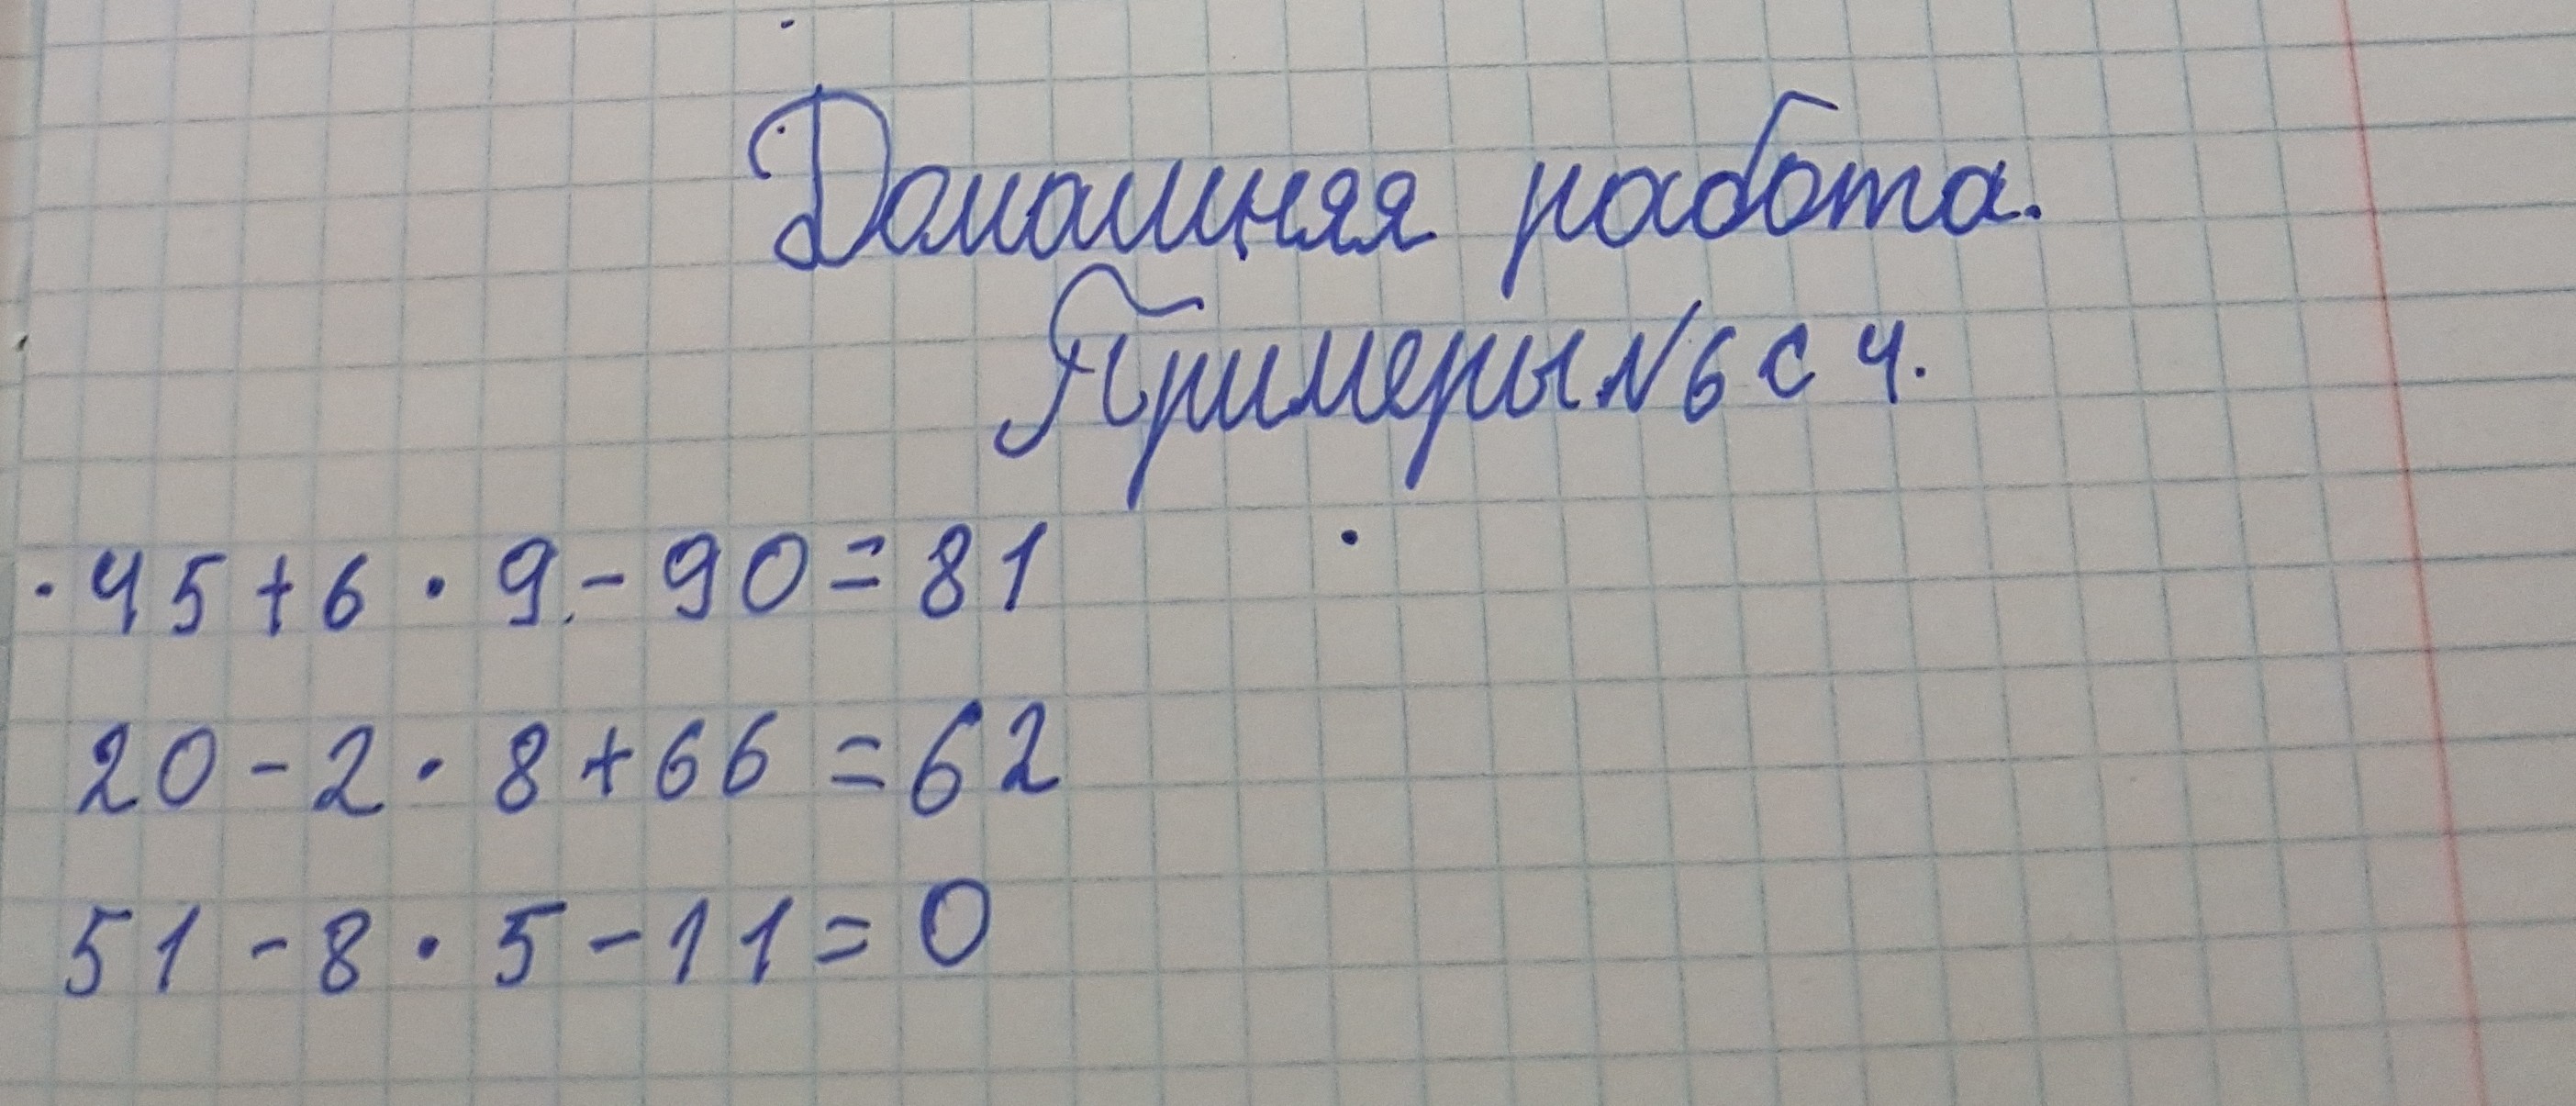 Домашняя работа.
Примеры №6 с 4.
45+6·9-90=81
20-2·8+66=62
51-8·5-11=0